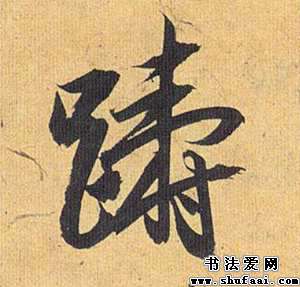 躊
书法爱网
www.shufaai.com